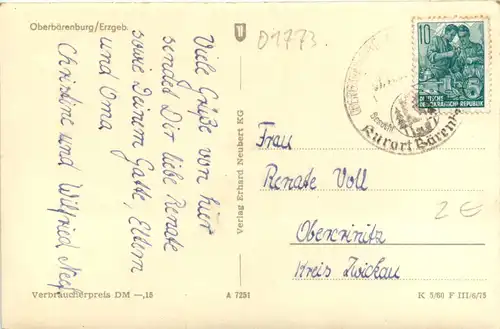 Oberbärenburg/Erzgeb.
01773
Viele Grüße von hier
sendet Dir liebe Renate
sowie Deinem Gatte, Eltern
und Oma
Christine und Wilfried
Verbraucherpreis DM —,15
A 7251
Verlag Erhard Neubert KG
10
DEUTSCHE
DEMOKRATISCHE REPUBLIK
Kurort Bärenburg
Frau
Renate Voll
Obercrinitz
Kreis Zwickau
2 €
K 5/60 F III/6/75